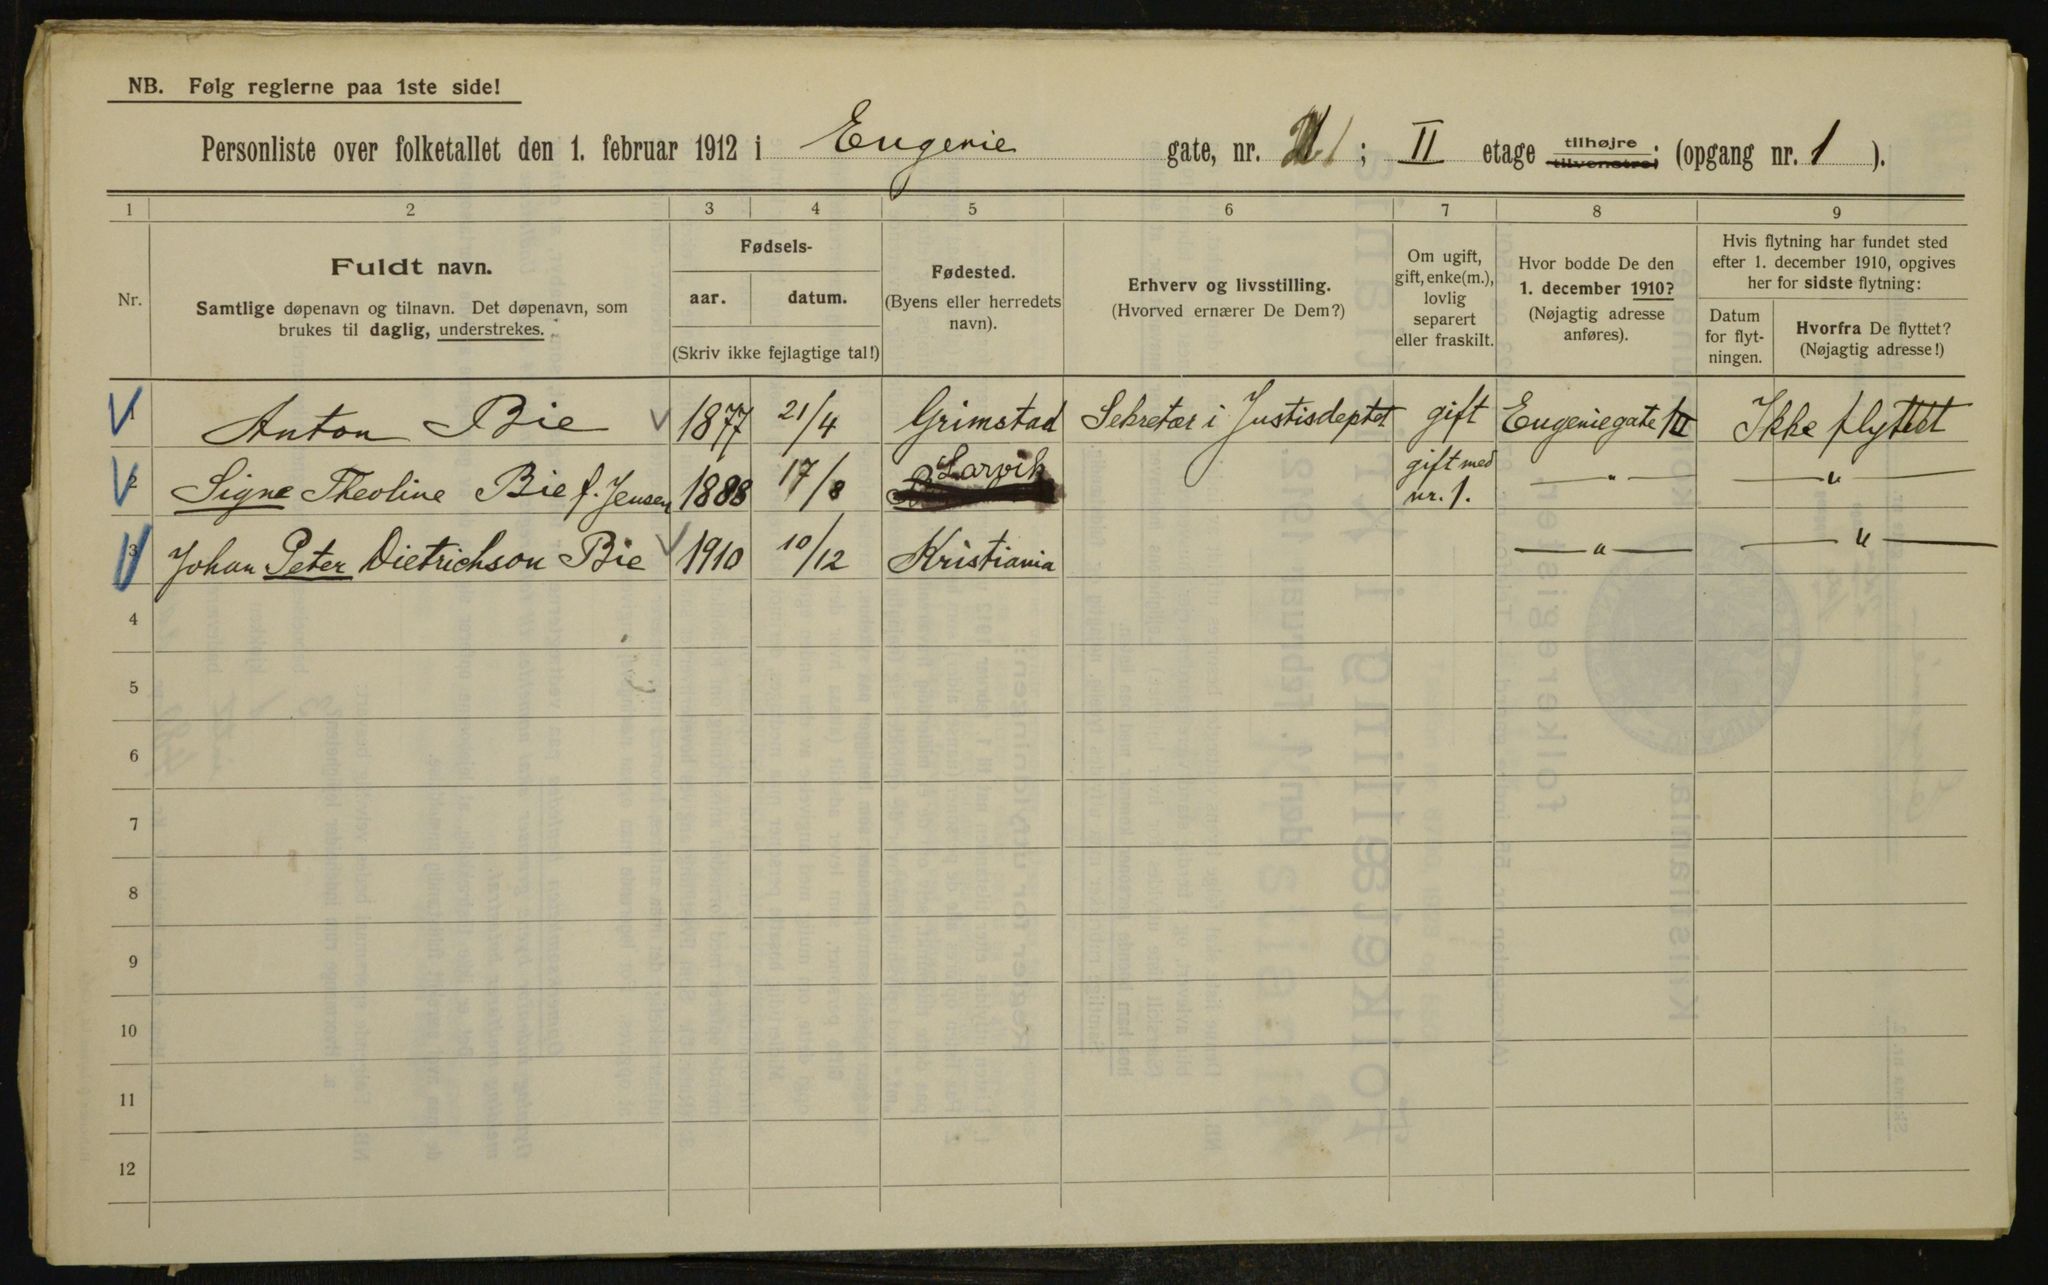 NB. Følg reglerne paa 1ste side!
Personliste over folketallet den 1. februar 1912 i Eugenie gate, nr. 1; II etage tilhøjre tilvenstre; (opgang nr. 1 ).
1 2 3 4 5 6 7 8 9
Nr.
Fuldt navn.
Samtlige døpenavn og tilnavn. Det døpenavn, som
brukes til daglig, understrekes.
Fødsels-
aar. datum.
(Skriv ikke fejlagtige tal!)
Fødested.
(Byens eller herredets
navn).
Erhverv og livsstilling.
(Hvorved ernærer De Dem?)
Om ugift,
gift, enke(m.),
lovlig
separert
eller fraskilt.
Hvor bodde De den
1. december 1910?
(Nøjagtig adresse
anføres).
Hvis flytning har fundet sted
efter 1. december 1910, opgives
her for sidste flytning:
Datum
for flyt-
ningen.
Hvorfra De flyttet?
(Nøjagtig adresse!)
1 Anton Bie 1877 21/4 Grimstad Sekretær i Justisdeptet gift Eugeniegate 1/II Ikke flyttet
2 Signe Theoline Bie f. Jensen 1888 17/8 Larvik gift med nr. 1. — " — — " —
3 Johan Peter Dietrichson Bie 1910 10/12 Kristiania — " — — " —
4
5
6
7
8
9
10
11
12